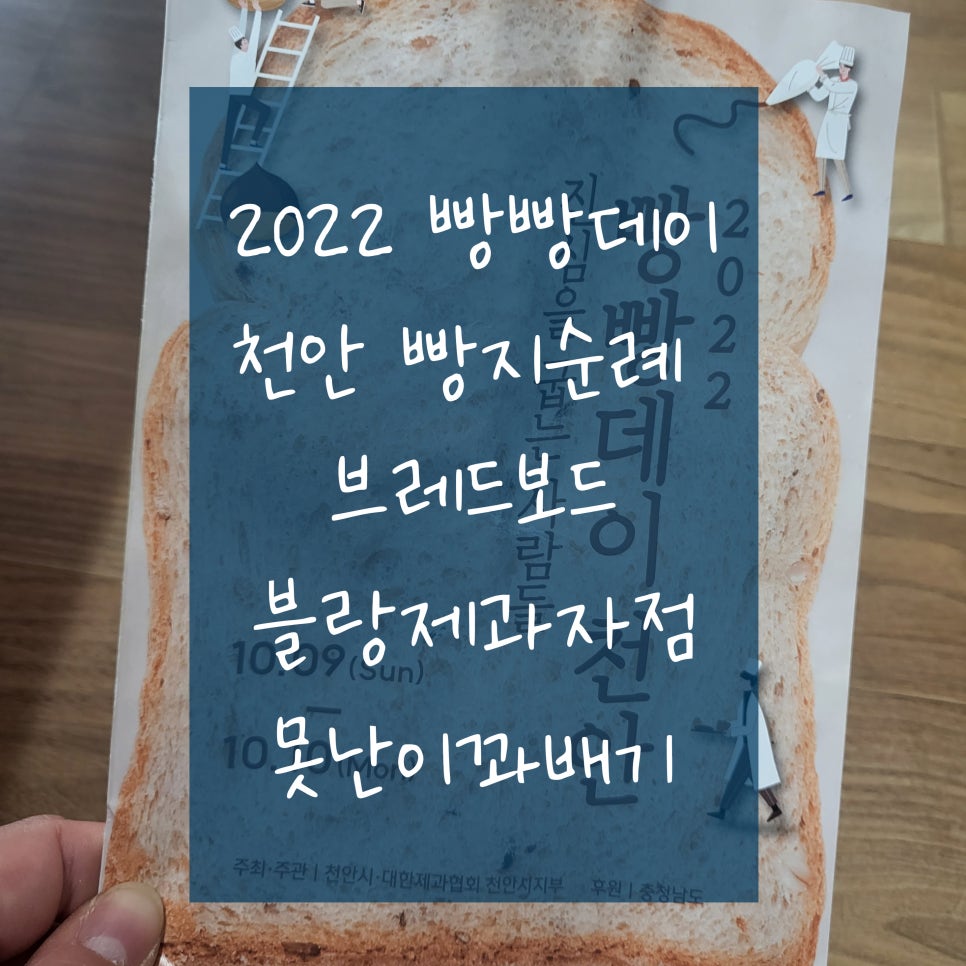 2022 빵빵데이
천안 빵지순례
브레드보드
블랑제과자점
못난이꽈배기
2022
빵빵데이 천안
진심을 굽는 사람들
10.09(Sun)
10.10(Mon)
주최·주관 | 천안시·대한제과협회 천안시지부 후원 | 충청남도